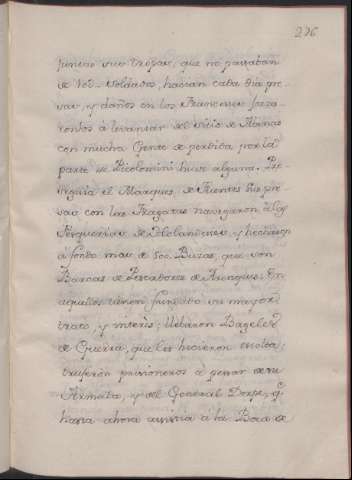 226
sus tropas, que no pasaban
de 700 soldados, hacian cada dia pre-
sas, y daños en los Franceses
à levantar del sitio de
con mucha Gente de perdida por la
parte de Picolomini hubo alguna. Pro-
seguia el Marques de Fuentes la pre-
sa con las Fragatas navegaron à las
Pesquerias de Ololandeses, y hecharon
à fondo mas de 500 Buzas, que son
Barcas de Pescadores de Arenques: En
aquellos tienen fundado su mayor
trato, y interès; llebaron Bageles
de Guerra, que les hicieron escolta;
trujeron prisioneros à pesar de su
Armada, y del General Dorpe, q.
hasta ahora asistia à la Boca de